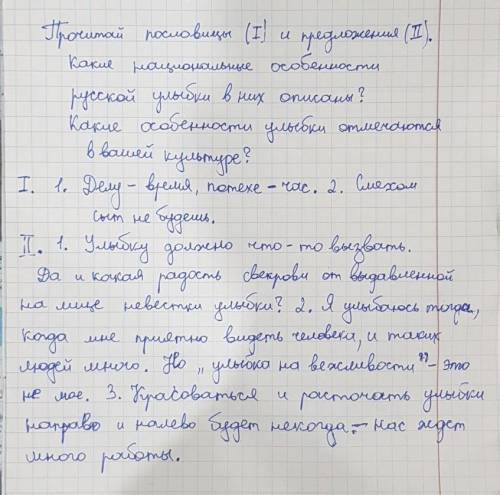 Прочитай пословицы (I) и предложения (II).
Какие национальные особенности
русской улыбки в них описаны?
Какие особенности улыбки отмечаются
в вашей культуре?
I. 1. Делу – время, потехе – час. 2. Смехом
сыт не будешь.
II. 1. Улыбку должно что-то вызвать.
Да и какая радость свекрови от выдавленной
на лице невестки улыбки? 2. Я улыбаюсь тогда,
когда мне приятно видеть человека, и таких
людей много. Но „улыбка на вежливости" – это
не мое. 3. Красоваться и расточать улыбки
направо и налево будет некогда – нас ждет
много работы.